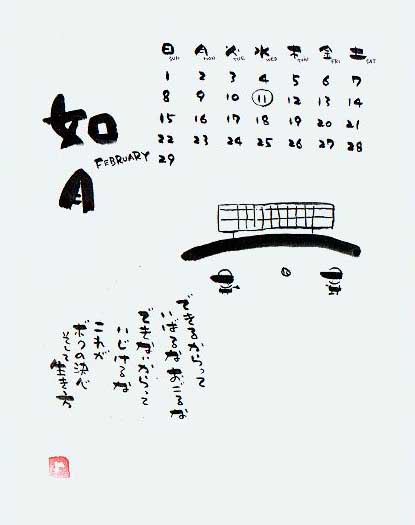 如月
FEBRUARY
日 月 火 水 木 金 土
SUN MON TUE WED THU FRI SAT
1 2 3 4 5 6 7
8 9 10 11 12 13 14
15 16 17 18 19 20 21
22 23 24 25 26 27 28
29
できるからって
いばるな おごるな
できないからって
いじけるな
これが
ボクの決心
そして生き方